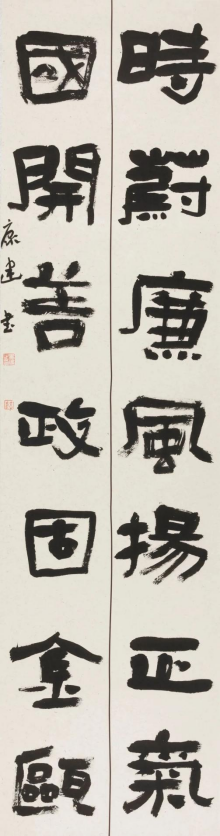 時蔚廉風揚正氣
國開善政固金甌
康建書